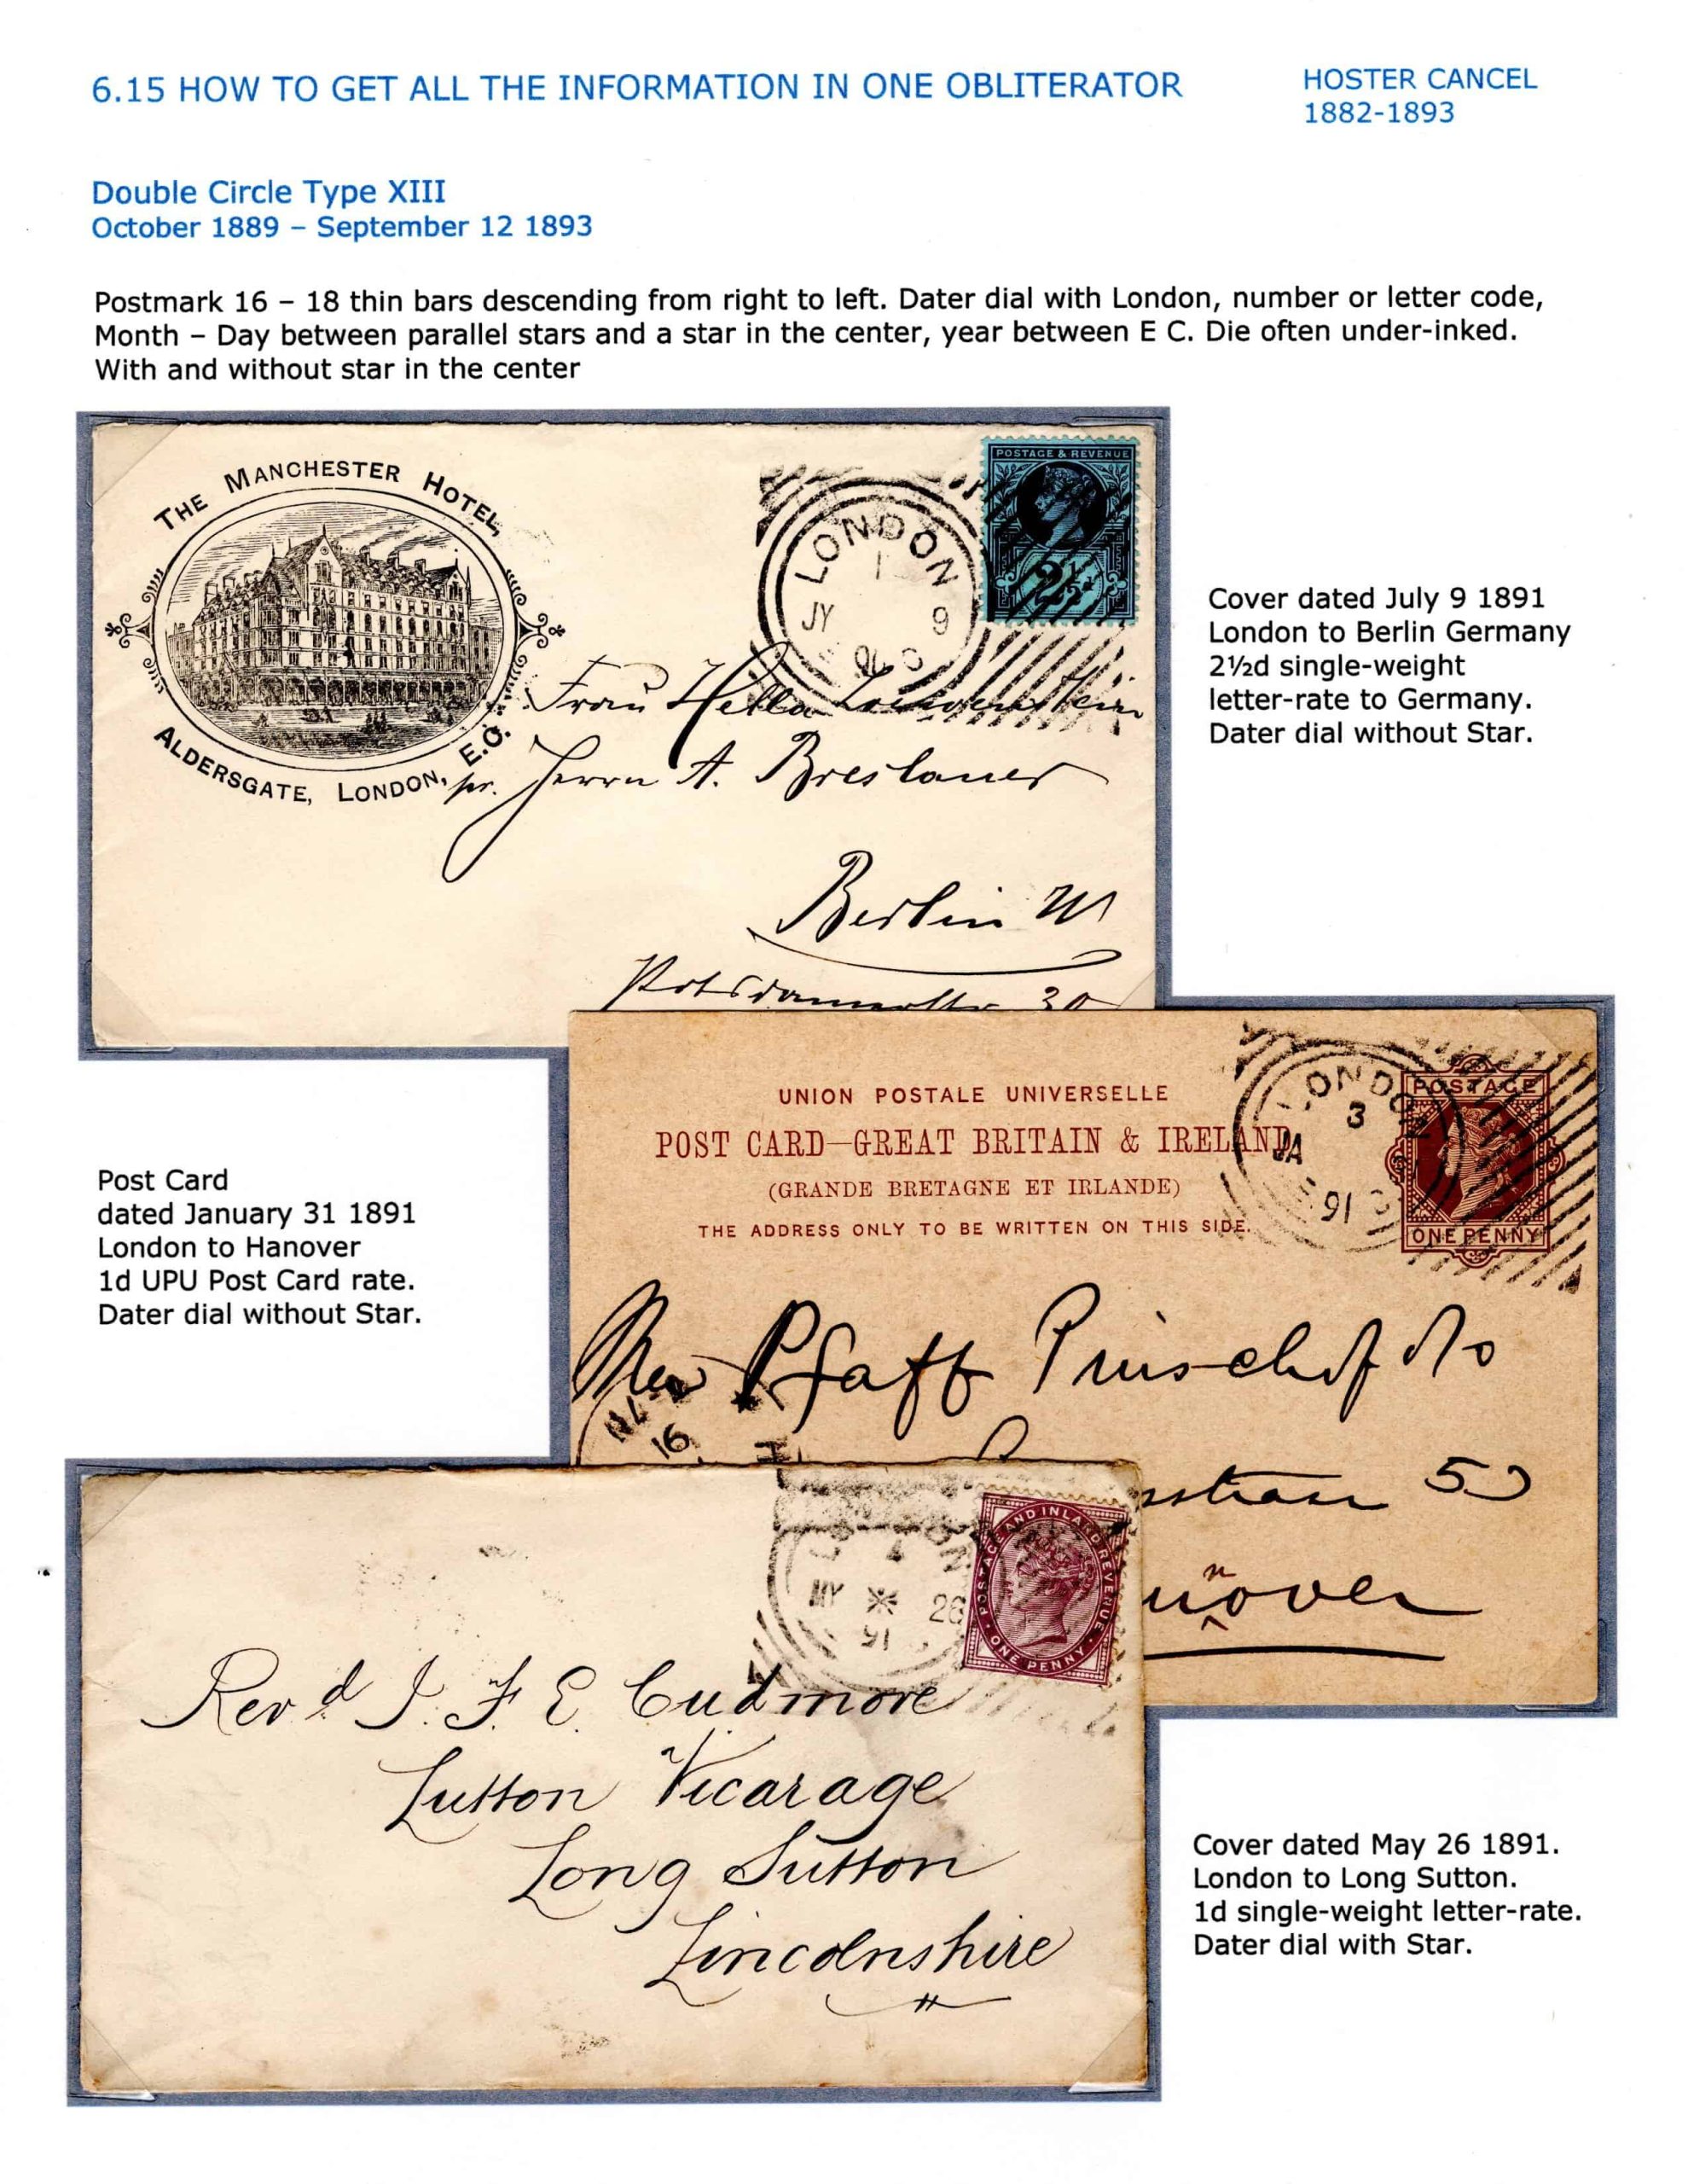 6.15 HOW TO GET ALL THE INFORMATION IN ONE OBLITERATOR
HOSTER CANCEL
1882-1893
Double Circle Type XIII
October 1889 – September 12 1893
Postmark 16 – 18 thin bars descending from right to left. Dater dial with London, number or letter code,
Month – Day between parallel stars and a star in the center, year between E C. Die often under-inked.
With and without star in the center
THE MANCHESTER HOTEL,
ALDERSGATE, LONDON, E.C.
LONDON
1
JY 9
91 C
POSTAGE & REVENUE
2½d
Frau Hella Loewenstein
pr. Herrn A. Breslauer
Berlin W
Potsdamerstr 30
Cover dated July 9 1891
London to Berlin Germany
2½d single-weight
letter-rate to Germany.
Dater dial without Star.
UNION POSTALE UNIVERSELLE
POST CARD—GREAT BRITAIN & IRELAND
(GRANDE BRETAGNE ET IRLANDE)
THE ADDRESS ONLY TO BE WRITTEN ON THIS SIDE.
LONDON
3
JA
91 C
POSTAGE
ONE PENNY
Pfaff
50
nover
16
Post Card
dated January 31 1891
London to Hanover
1d UPU Post Card rate.
Dater dial without Star.
MY 26
91
POSTAGE AND INLAND REVENUE
ONE PENNY
Revd J. F. E. Cudmore
Sutton Vicarage
Long Sutton
Lincolnshire
Cover dated May 26 1891.
London to Long Sutton.
1d single-weight letter-rate.
Dater dial with Star.